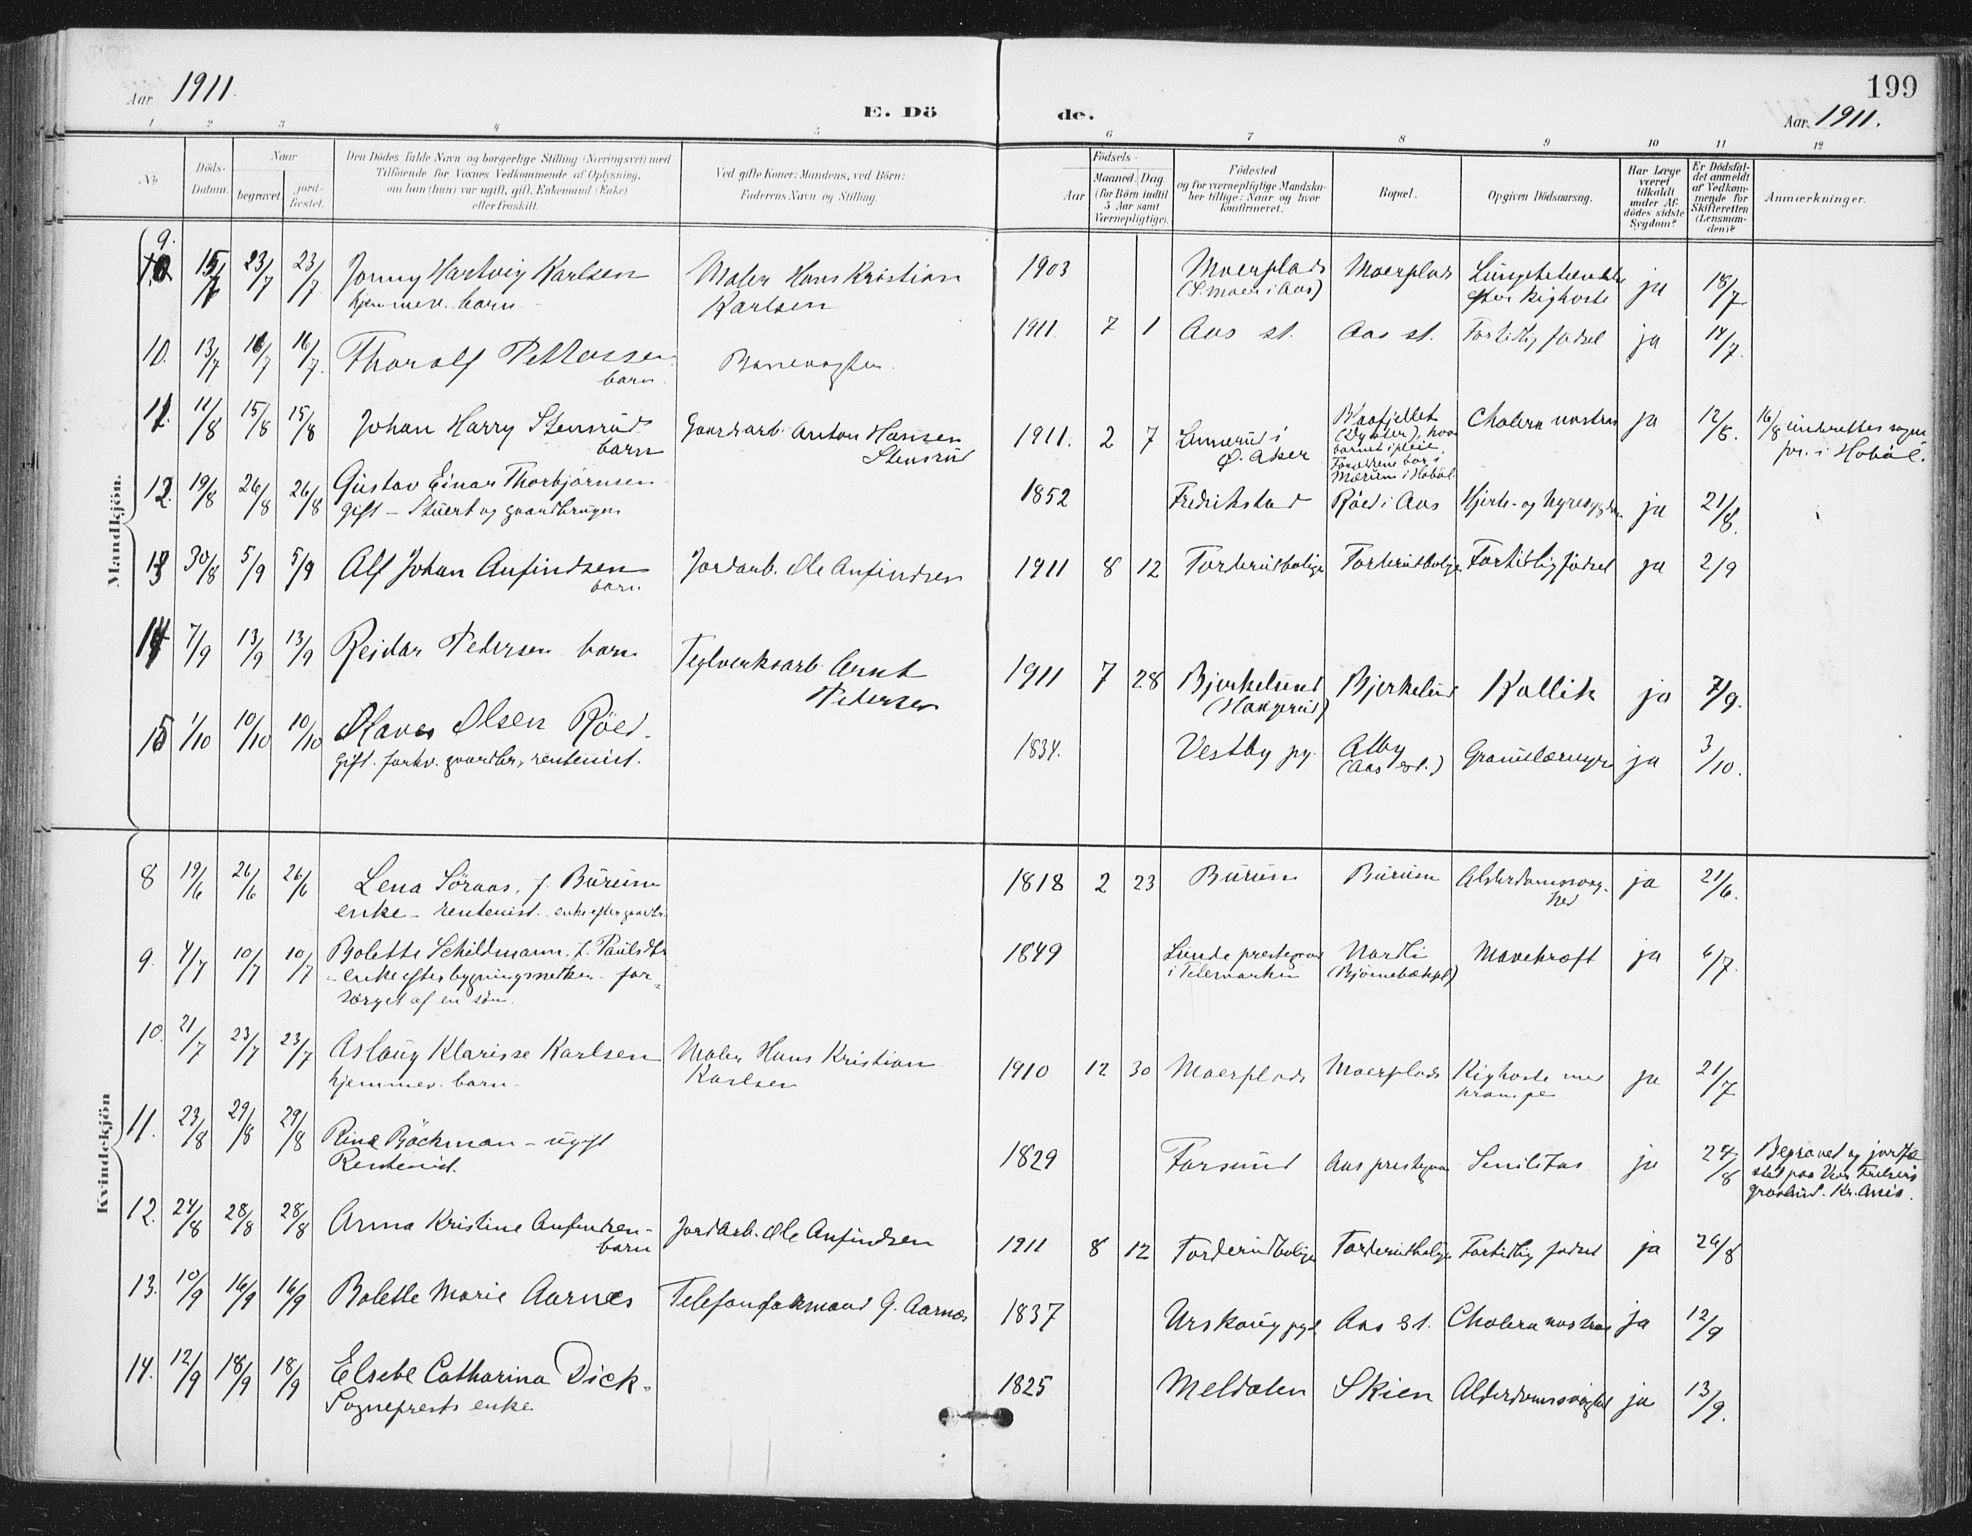 199
Aar 1911.
E. Dö de.
Aar 1911.
1 2 3 4 5 6 7 8 9 10 11 12
No
Döds-
Datum.
Naar
begravet.
jord-
fæstet.
Den Dödes fulde Navn og borgerlige Stilling (Næringsvei) med
Tilföiende for Voxnes Vedkommende af Oplysning,
om han (hun) var ugift, gift, Enkemand (Enke)
eller fraskilt.
Ved gifte Koner: Mandens, ved Börn:
Faderens Navn og Stilling.
Födsels-
Aar
Maaned. Dag
(for Börn indtil
5 Aar samt
Værnepligtige).
Födested
og for værnepligtige Mandska-
ber tillige: Naar og hvor
konfirmeret.
Bopæl.
Opgiven Dödsaarsag.
Har Læge
været
tilkaldt
under Af-
dödes sidste
Sygdom?
Er Dödsfal-
det anmeldt
af Vedkom-
mende for
Skifteretten
(Lensman-
den)?
Anmærkninger.
Mandkjön.
9.
15/7 23/7 23/7 Jonny Hartvig Karlsen Maler Hans Kristian 1903 Moerplads Moerplads ja 18/7
hjemmev. barn - Karlsen (S. Moer i Aas) efter kighoste
10. 13/7 16/7 16/7. Thoralf Pettersen Banevogter. 1911. 7 1 Aas st. Aas st. Fortidlig födsel ja 14/7.
barn.
11. 11/8 15/8 15/8 Johan Harry Stensrud Gaardarb. Anton Hansen 1911. 2 7 Cholera nostras ja 12/8. 16/8 underrettes sogne
barn Stensrud Ö. Aker barnet i pleie. pr. i Hobøl.
Forældrene bor i
Mørum i Hobøl
12. 19/8 26/8 26/8 Gustav Einar Thorbjørnsen 1852 Fredrikstad Røed i Aas Hjerte- og nyresygdom ja 21/8.
gift - Stuert og gaardbruger
13 30/8 5/9 5/9 Alf Johan Anfindsen Jordarb. Ole Anfindsen 1911 8 12 Forderudbolige Forderudbolige Fortidlig födsel ja 2/9
barn
14 7/9 13/9 13/9 Reidar Pedersen barn Teglverksarb. Arnt 1911 7 28 Bjerkelund Bjerkelund Kollik ja 7/9.
Pedersen
15 1/10 10/10 10/10 Olaves Olsen Röed. 1834. Vestby pg. Alby ja 3/10.
gift. forhv. gaardbr., rentenist. (Aas st.)
Kvindekjön
8 19/6 26/6 26/6 Lena Söraas, f. Burum 1818 2 23 Burum Burum Alderdomssvag- ja 21/6.
enke - rentenist. enke efter gaardbr. hed
9. 4/7 10/7 10/7 Bolette Schildmann f. Paulsdtr 1849 Lunde prestegjæld Nordli Mavekræft ja 6/7.
- enke efter bygningssnekker - for- i Telemarken (Bjørnebækpl.)
sørget af en søn.
10. 21/7 23/7 23/7 Aslaug Klarisse Karlsen Maler Hans Kristian 1910 12 30 Moerplads Moerplads Kighoste med ja 21/7
hjemmev. barn - Karlsen krampe
11. 23/8 29/8 29/8 Rina Böckman - ugift 1829 Farsund Aas prestegaard Senilitas ja 24/8 Begravet og jordfæ
Rentenist. stet paa Vor Frelsers
gravlund. Kr.ania.
12. 24/8 28/8 28/8 Anna Kristine Anfindsen - Jordarb. Ole Anfindsen 1911 8 12 Forderudbolige Forderudbolige Fortidlig födsel ja 26/8
barn
13. 10/9 16/9 16/9 Bolette Marie Aarnes Telefonformand G. Aarnes 1837 Urskoug pgl. Aas st. Cholera nostras ja 12/9
14. 12/9 18/9 18/9 Elsebe Catharina Dick - 1825 Meldalen Skien Alderdomssvaghed ja 13/9.
Sogneprests enke